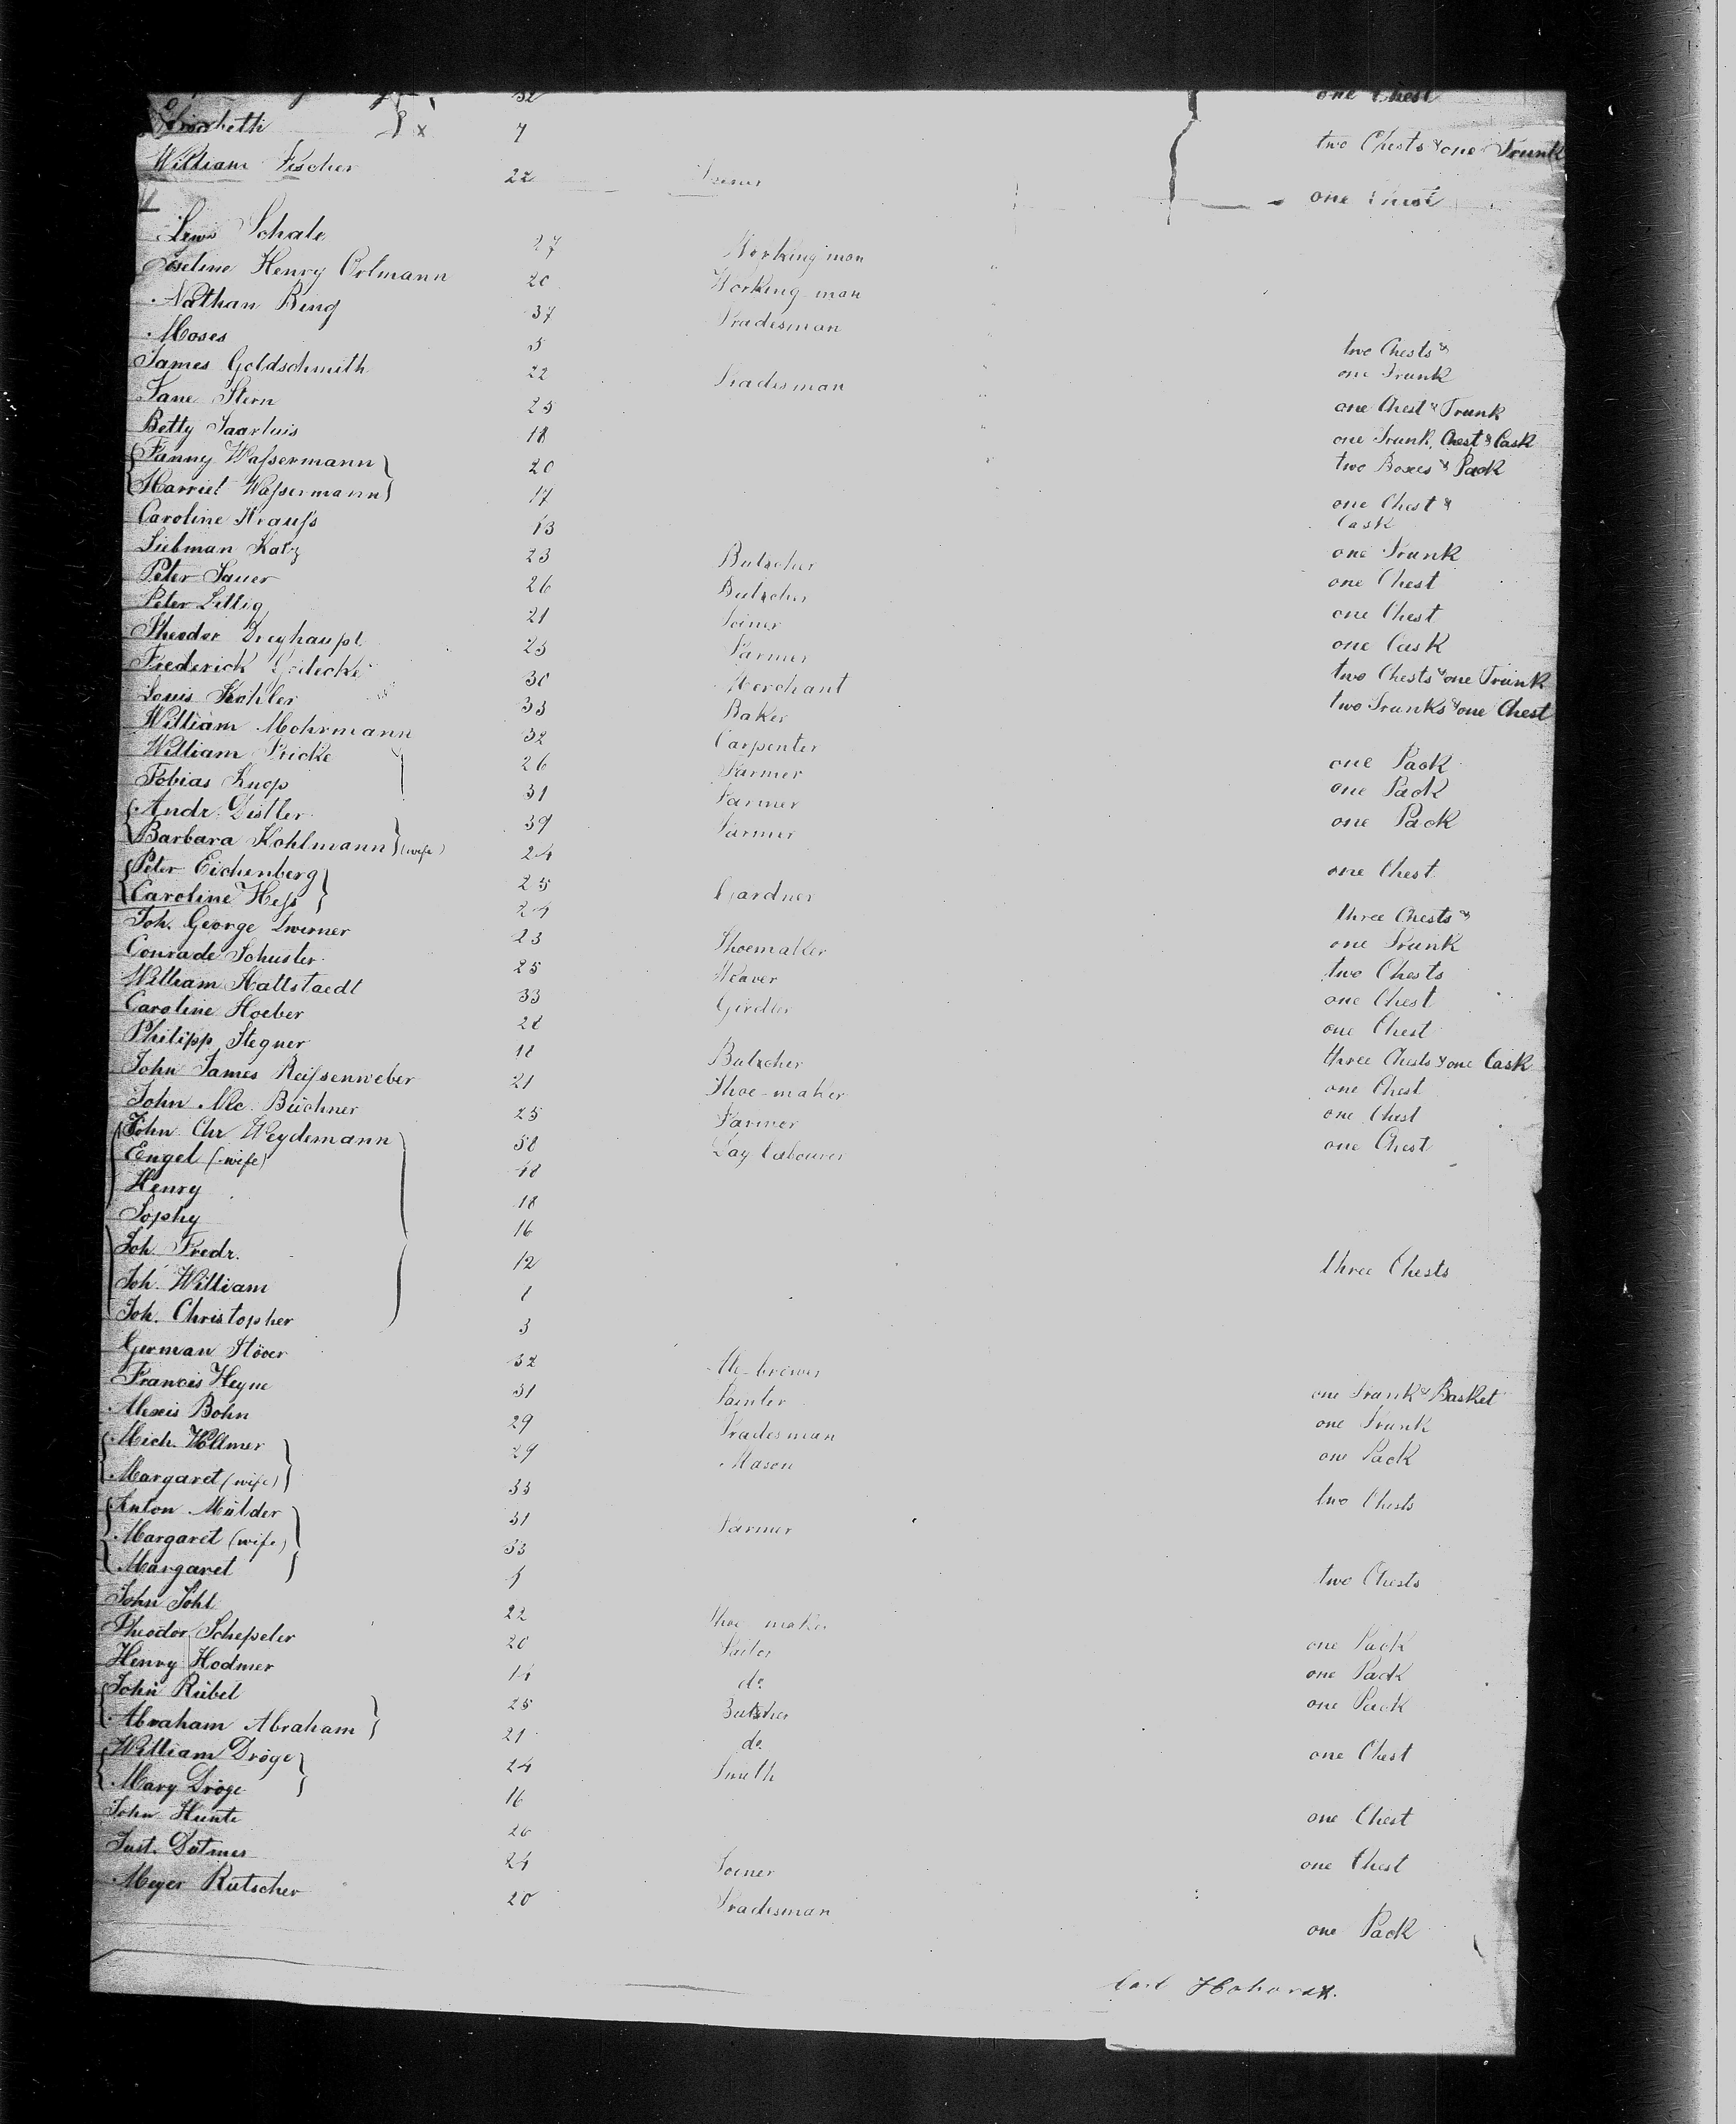 32 one Chest
Elisabeth 7 two Chests & one Trunk
William Fischer 22 one Chest
Lewis Schale 27 Working man
Henry Ortmann 20 Working-man
Nathan Bing 37 Tradesman
Moses 5 two Chests &
James Goldschmith 22 Tradesman one Trunk
Jane Stern 25 one Chest & Trunk
Betty Saarluis 18 one Trunk, Chest & Cask
Fanny Waſsermann 20 two Boxes & Pack
Harriet Waſsermann 17 one Chest &
Caroline Krauſs 13 Cask
Liebman Katz 23 Butscher one Trunk
Peter Sauer 26 Butscher one Chest
Peter Lettig 21 Joiner one Chest
Theodor Dreyhaupt 23 Farmer one Cask
Frederick 30 Merchant two Chests & one Trunk
Louis Kohler 33 Baker two Trunks & one Chest
William Mohrmann 32 Carpenter
William Fricke 26 Farmer one Pack
Tobias Knop 31 Farmer one Pack
Andr. Distler 39 Farmer one Pack
Barbara Kohlmann (wife) 24
Peter Eichenberg 25 Gardner one Chest
Caroline Heſs 24 three Chests &
Joh. George Zwirner 23 Shoemaker one Trunk
Conrade Schuster 25 Weaver two Chests
William Hattstaedt 33 Girdler one Chest
Caroline Hoeber 28 one Chest
Philipp Stegner 18 Butscher three Chests & one Cask
John James Reiſsenweber 21 Shoe-maker one Chest
John Nic. Büchner 25 Farmer one Chest
John Chr Weydemann 58 Day labourer one Chest
Engel (wife) 48
Henry 18
Sophy 16
Joh. Fredr. 12 three Chests
Joh. William 1
Joh. Christopher 3
German Stöver 32 Ale-brewer
Francis Heyne 31 Painter one Trunk & Basket
Alexis Bohn 29 Tradesman one Trunk
Mich. Vollmer 29 Mason one Pack
Margaret (wife) 33 two Chests
Anton Mülder 31 Farmer
Margaret (wife) 33
Margaret two Chests
John Pohl 22 Shoe maker
Theodor Schepeler 20 Tailor one Pack
Henry Hodmer 14 do. one Pack
John Rübel 25 Butscher one Pack
Abraham Abraham 21 do.
William Dröge 24 Smith one Chest
Mary Dröge 16
John Hunte 20 one Chest
Just. Dütmer 24 Joiner one Chest
Meyer Rutscher 20 Tradesman
one Pack
Carl